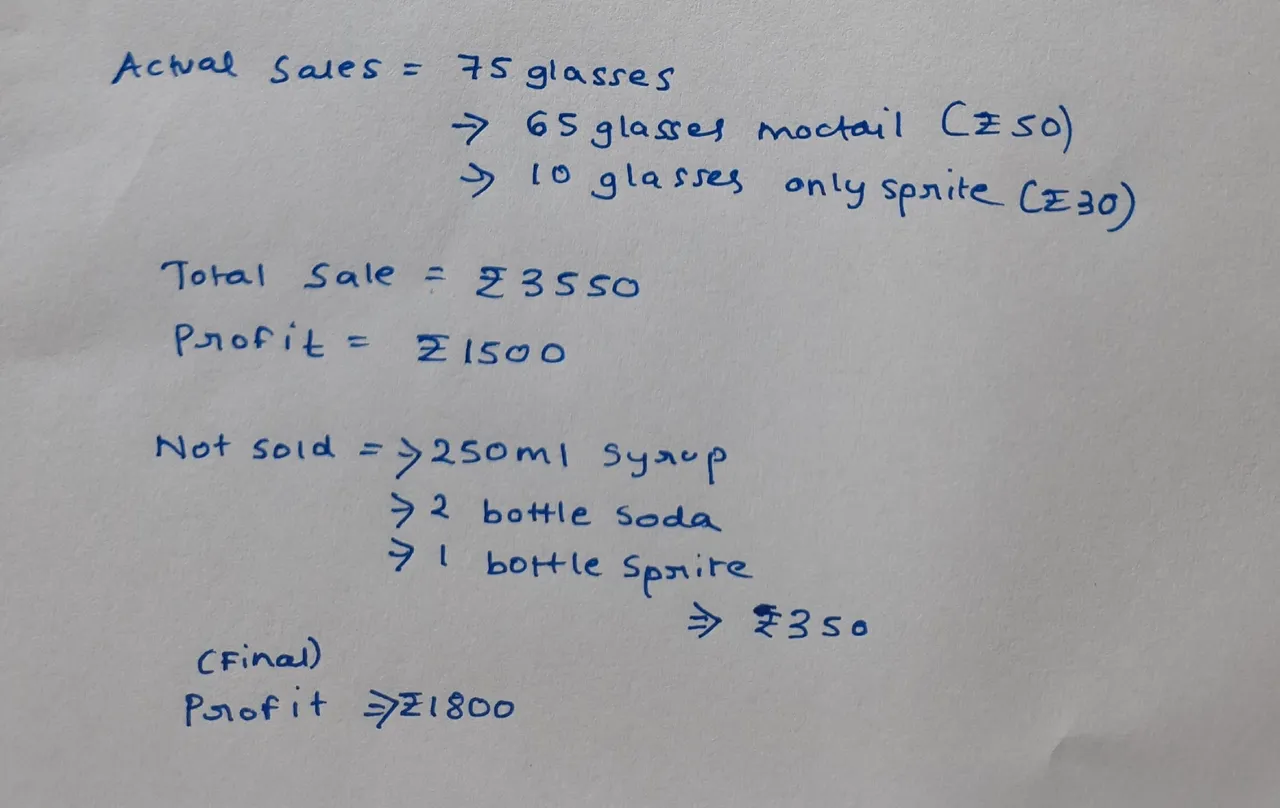 Actual Sales = 75 glasses
→ 65 glasses moctail (₹50)
→ 10 glasses only sprite (₹30)
Total Sale = ₹3550
Profit = ₹1500
Not sold => 250ml syrup
→ 2 bottle soda
→ 1 bottle Sprite
⇒ ₹350
(Final)
Profit ⇒ ₹1800